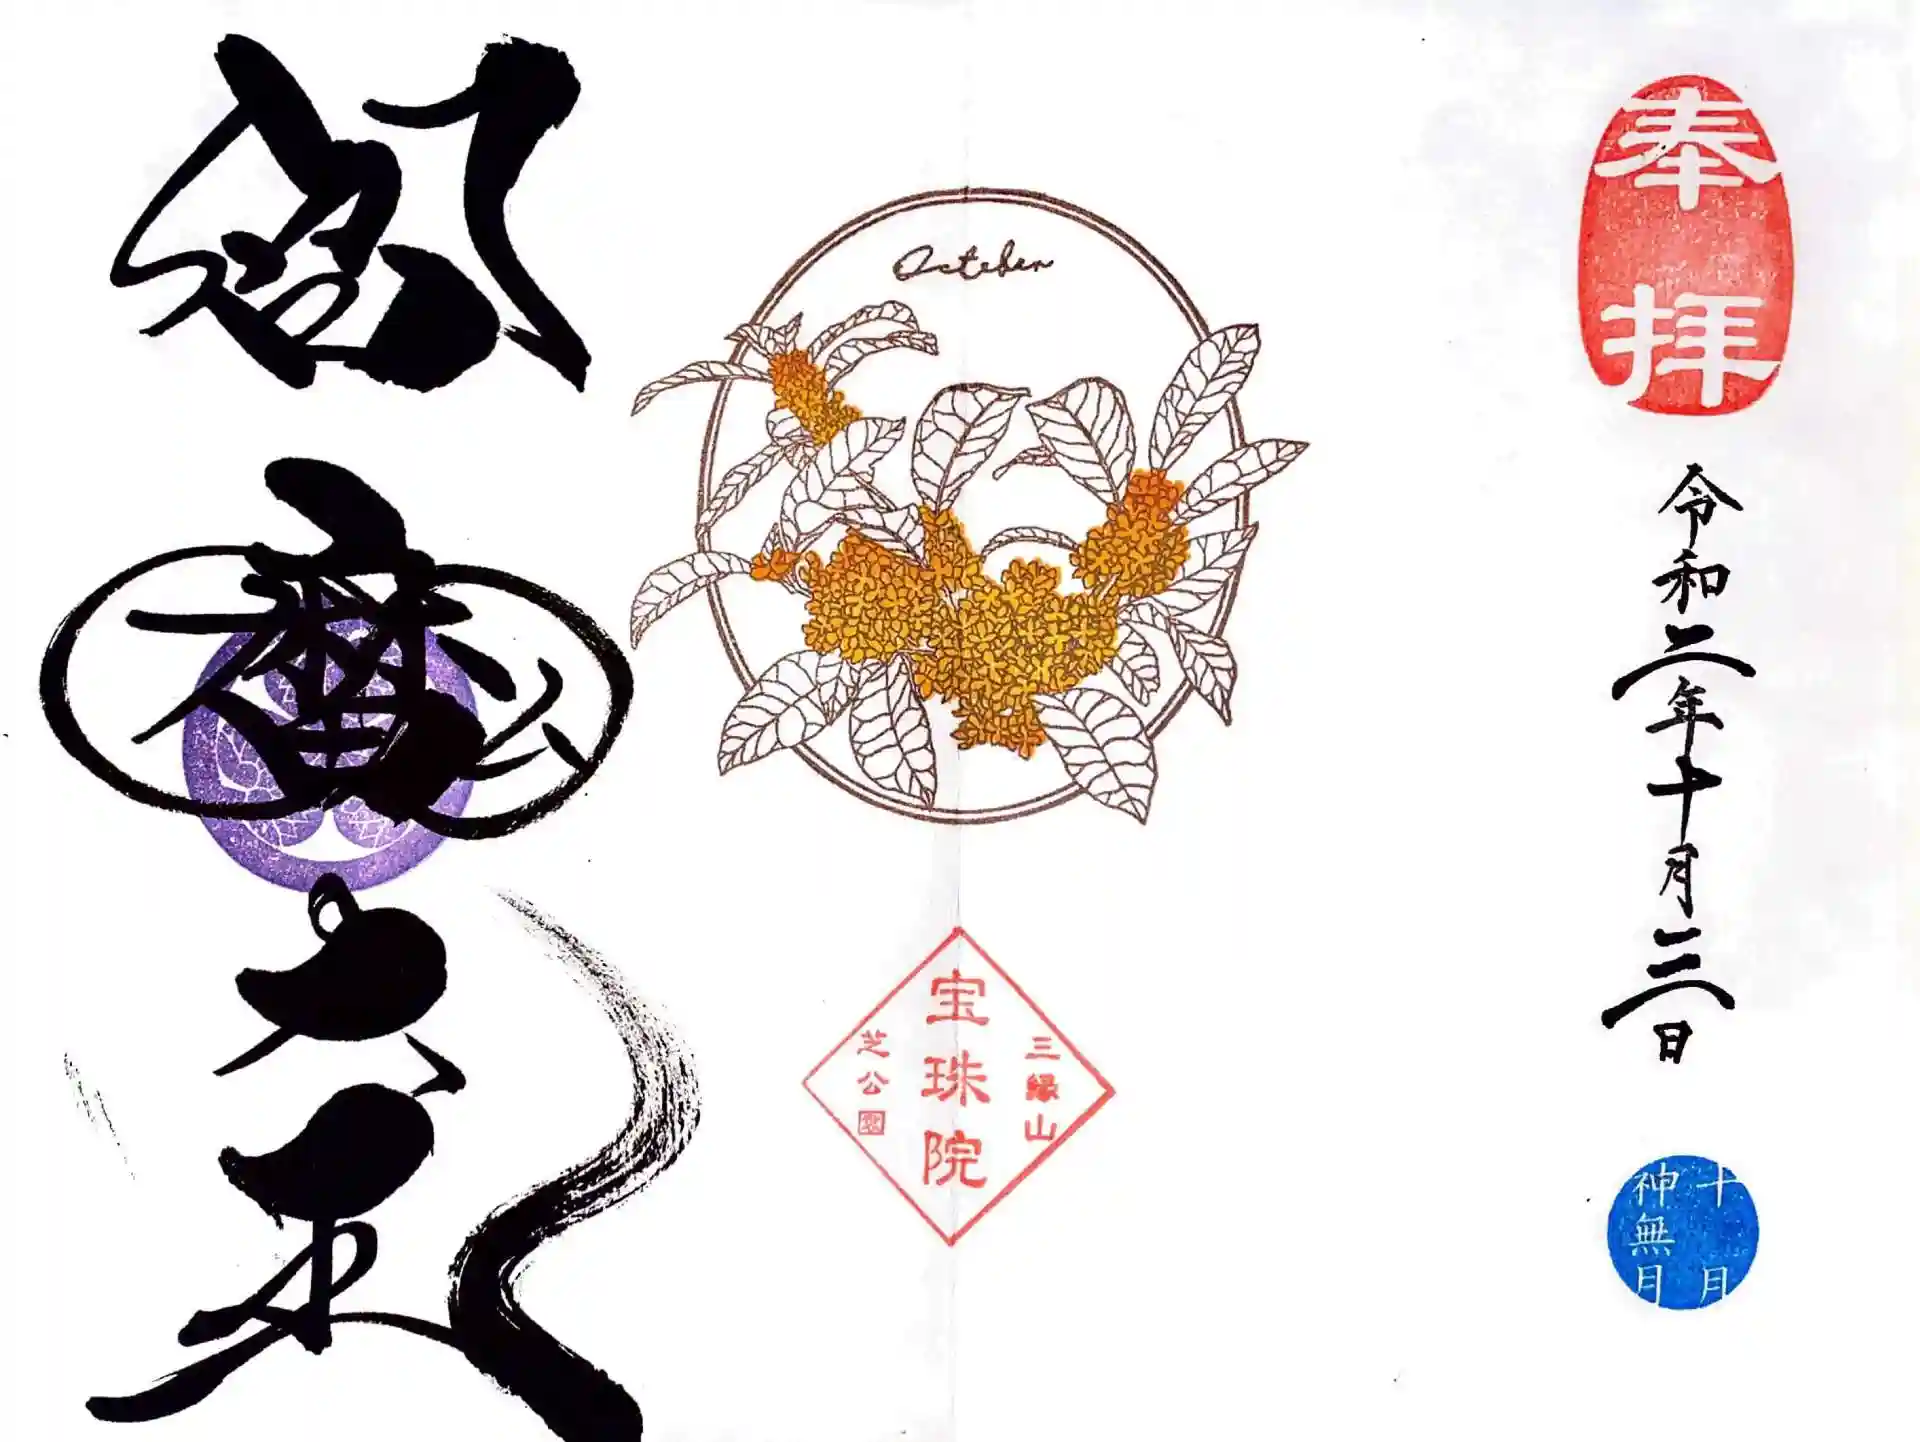 奉拝
令和二年十月三日
十月
神無月
October
三縁山
宝珠院
芝公園
閻魔大王